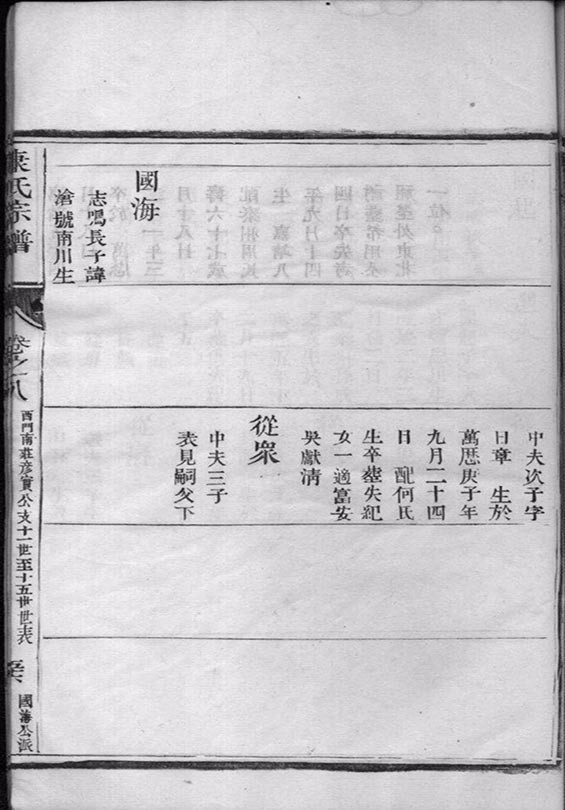 國海
志鳴長子諱
滄號南川生
中夫次子字
日章　生於
萬厯庚子年
九月二十四
日　配何氏
生卒塟失紀
女一適富安
吳獻淸
從衆
中夫三子
表見嗣父下
康氏宗譜
卷之八
西門南莊彦實公支十一世至十五世世表
國海公派